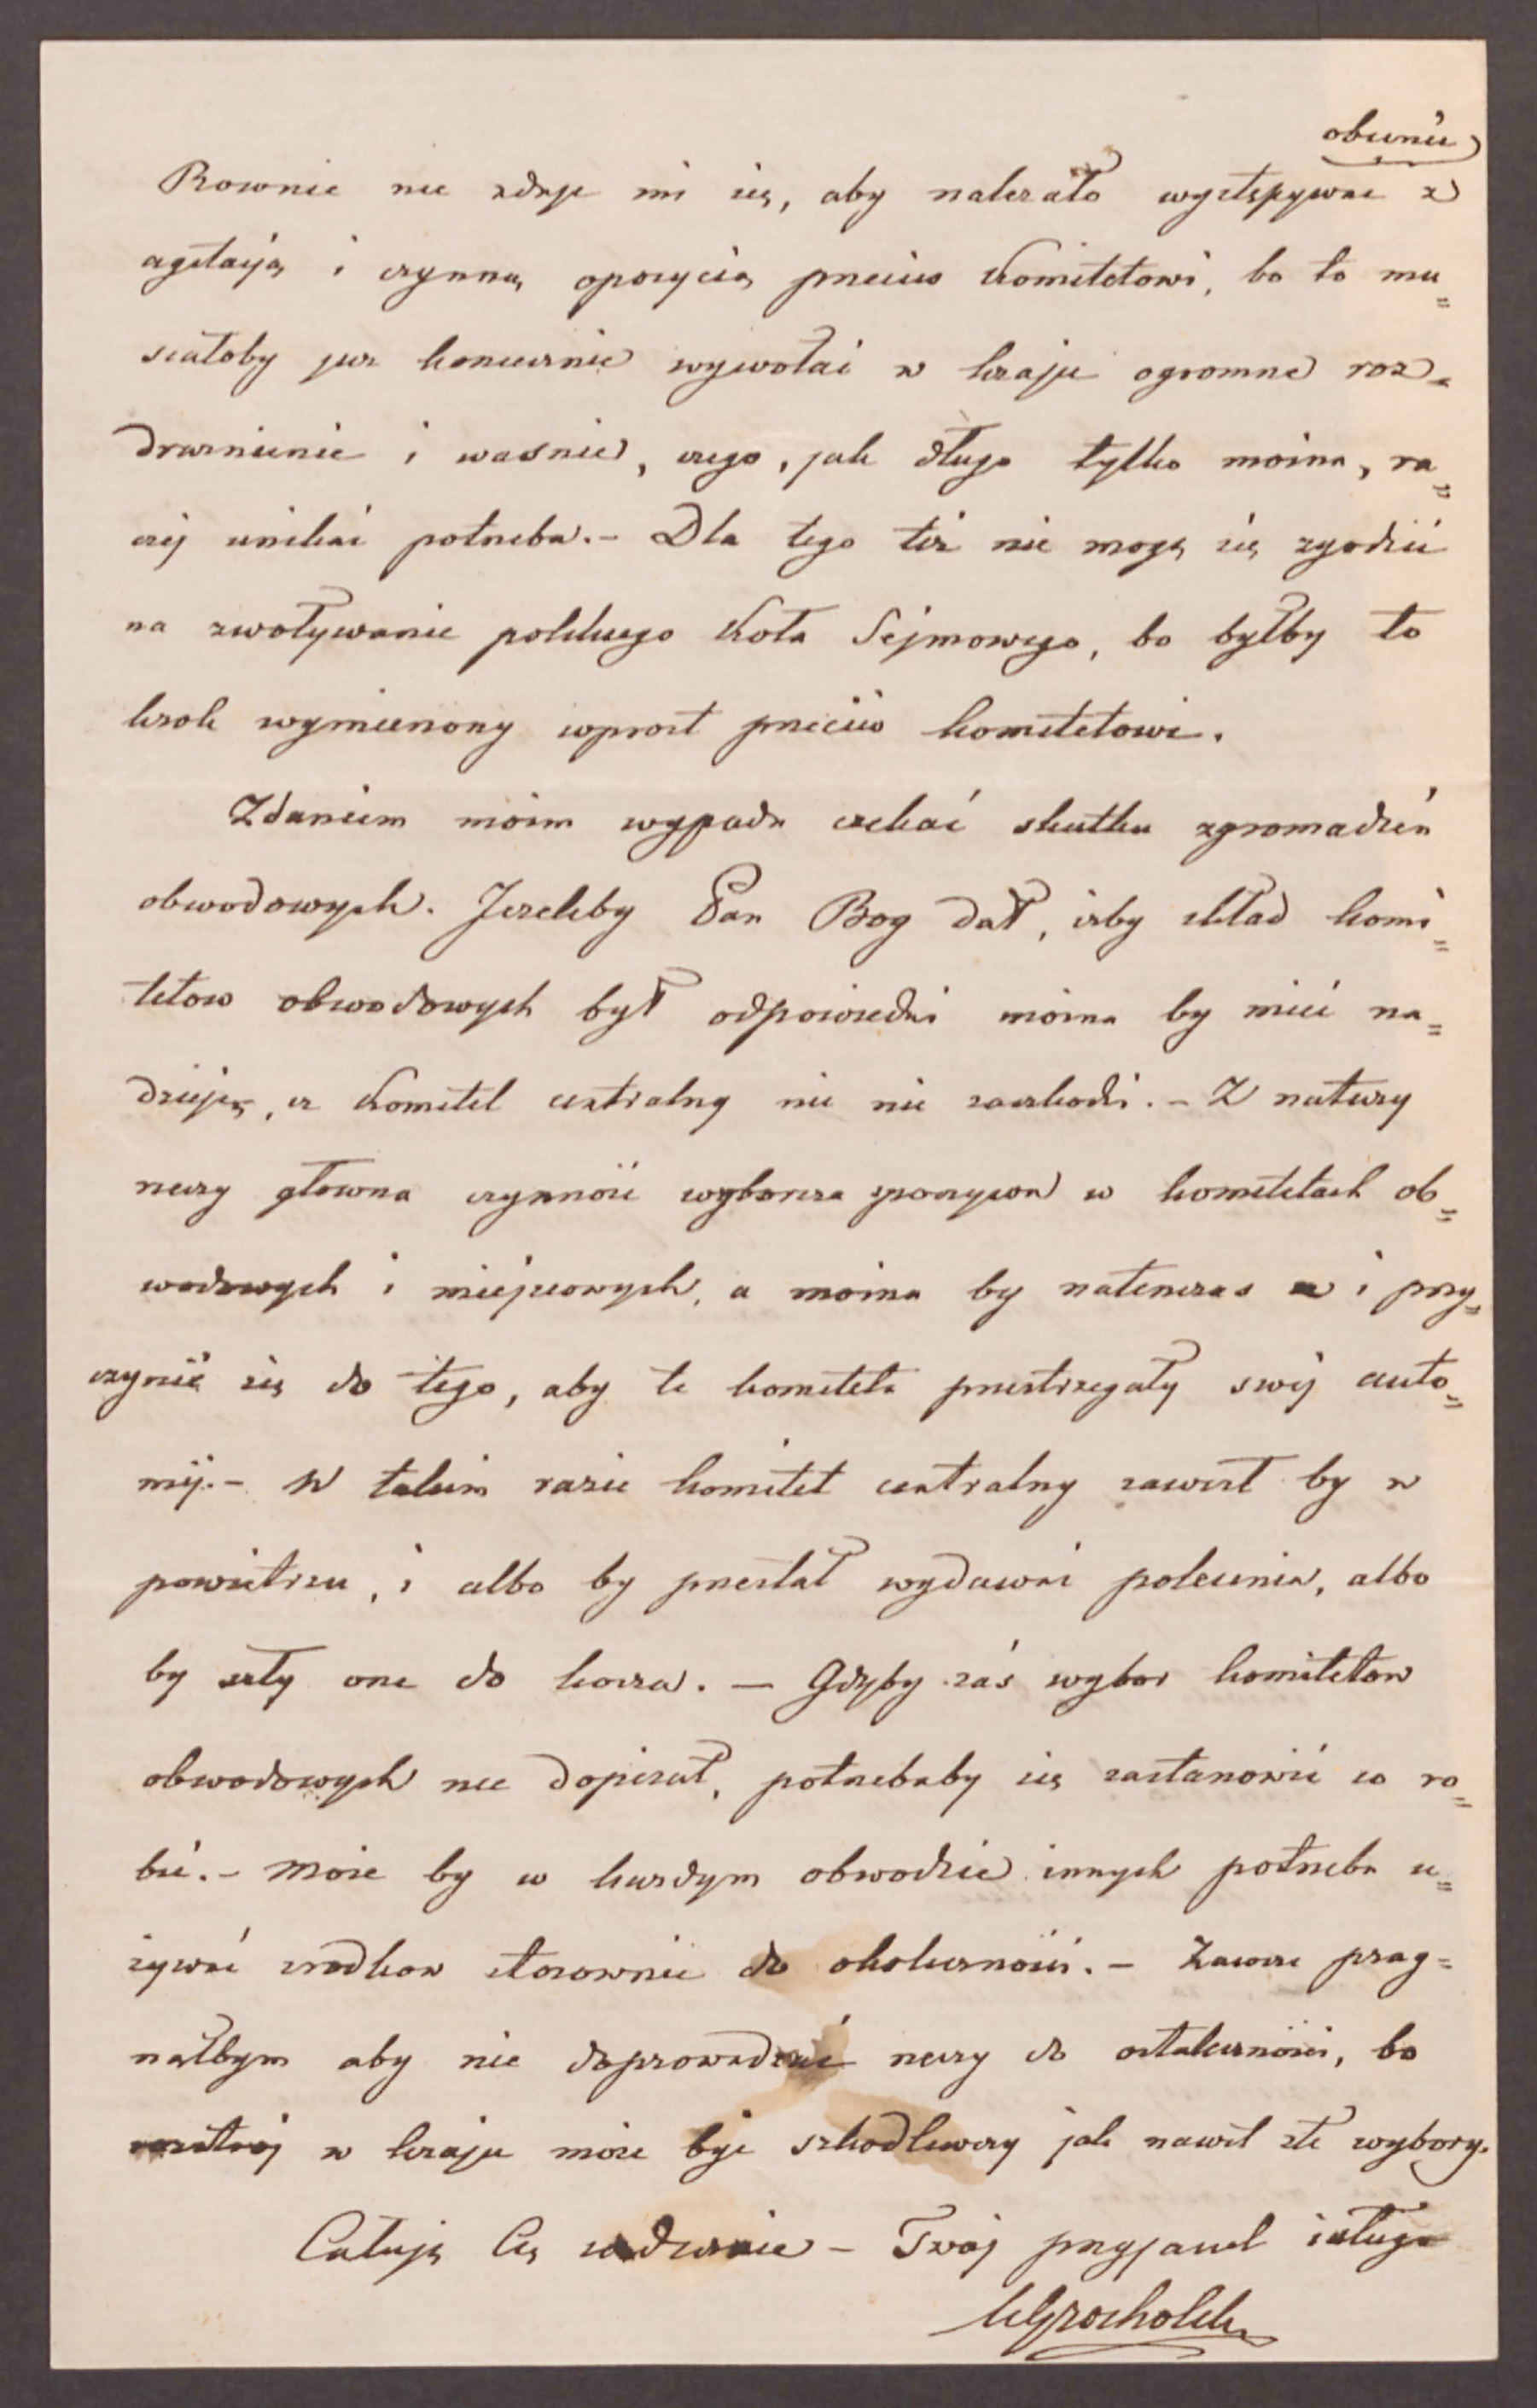 obecnie
Rownie nie zdaje mi się, aby należało występywac z
agitacją i czynną opozycią przeciw Komitetowi, bo to mu=
siałoby juz koniecznie wywołać w kraju ogromne roz=
drażnienie i wasnie, czego, jak długo tylko można, ra=
czej unikać potrzeba. – Dla tego też nie mogę się zgodzić
na zwoływanie polskiego Koła Sejmowego, bo byłby to
krok wymierzony wprost przeciw komitetowi.
Zdaniem moim wypada czekać skutku zgromadzeń
obwodowych. Jezeliby Pan Bog dał, izby skład komi=
tetow obwodowych był odpowiedni można by mieć na=
dzieję, iz Komitet centralny nic nie zaszkodzi. – Z natury
rzeczy głowna czynność wyborcza spoczywa w komitetach ob=
wodowych i miejscowych, a można by natenczas i przy=
czynić się do tego, aby te komiteta przestrzegały swej auto=
mij. – W takim razie komitet centralny zawisł by w
powietrzu, i albo by przestał wydawać polecenia, albo
by szły one do kosza. – Gdyby zaś wybor komitetow
obwodowych nie dopisał, potrzebaby się zastanowić co ro=
bić. – Może by w kazdym obwodzie innych potrzeba u=
żywać srodkow stosownie do okoliczności. – Zawsze prag=
nąłbym aby nie doprowadzać rzeczy do ostateczności, bo
rozstrój w kraju może być szkodliwszy jak nawet złe wybory.
Całuję Cię serdecznie – Twój przyjaciel i sługa
KGrocholski